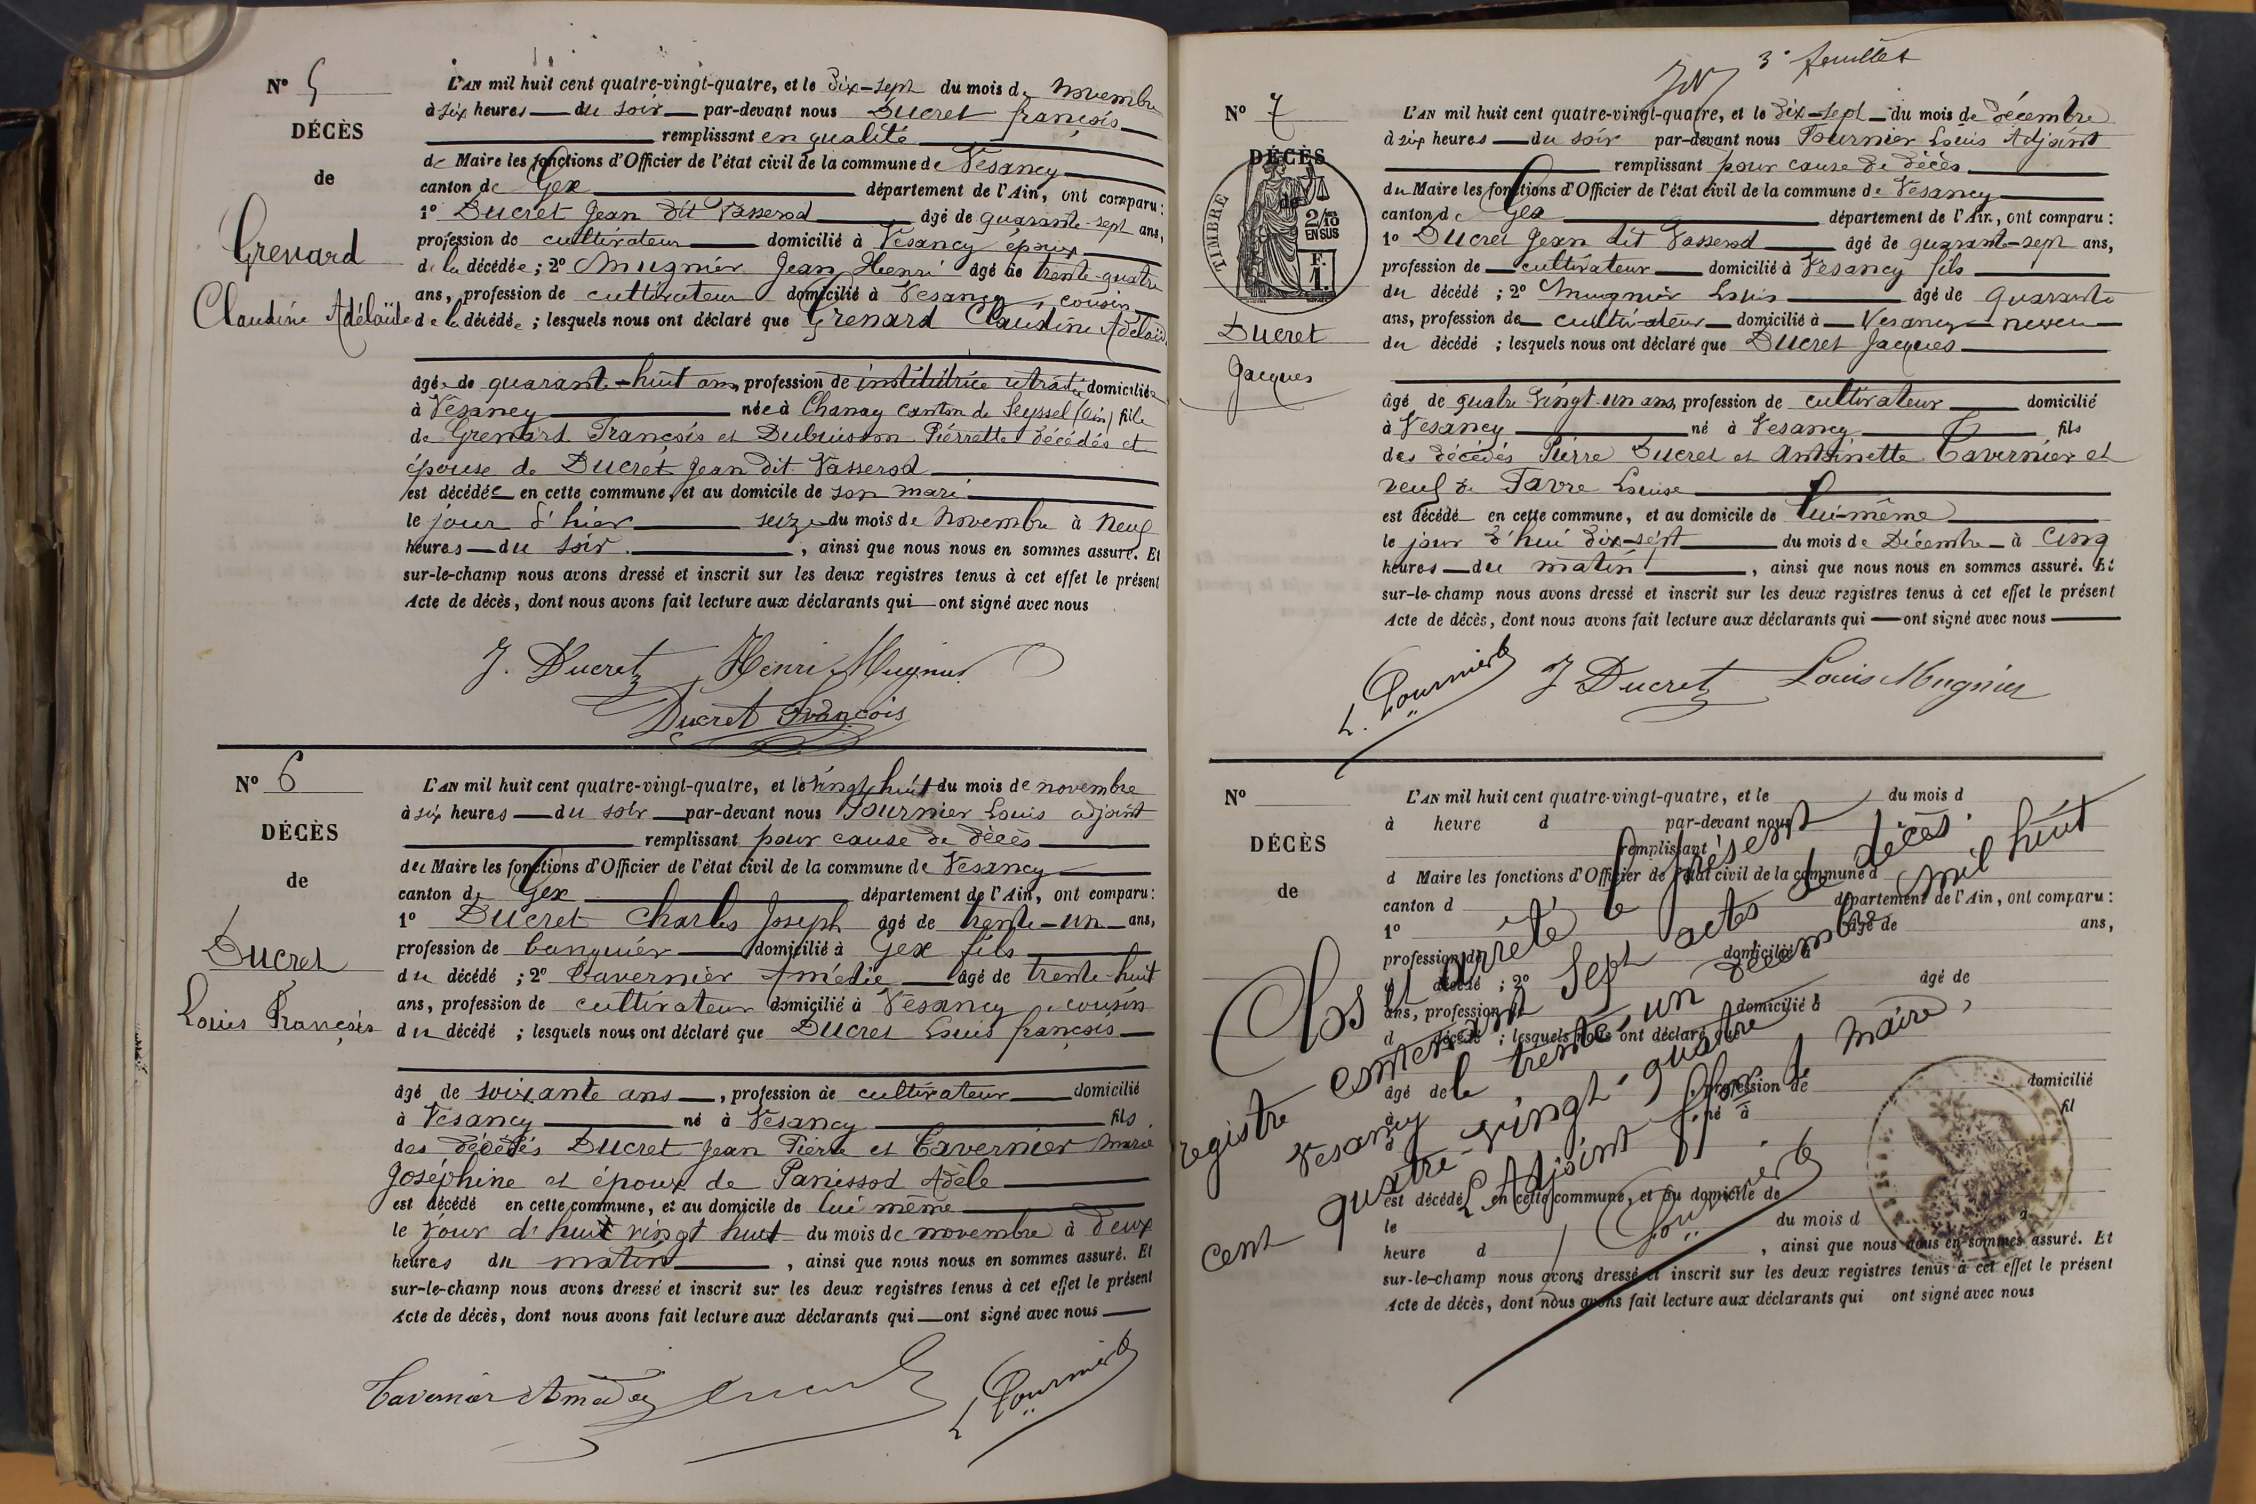 Nº 5
DÉCÈS
de
Grenard
Claudine Adélaïde
L'AN mil huit cent quatre-vingt-quatre, et le dix-sept du mois de novembre
à six heures du soir par-devant nous Ducret françois
remplissant en qualité
de Maire les fonctions d'Officier de l'état civil de la commune de Vesancy
canton de Gex département de l'Ain, ont comparu :
1º Ducret Jean dit Vasserod âgé de quarante-sept ans,
profession de cultivateur domicilié à Vesancy époux
de la décédée ; 2º Mugnier Jean Henri âgé de trente-quatre
ans, profession de cultivateur domicilié à Vesancy, cousin
de la décédée ; lesquels nous ont déclaré que Grenard Claudine Adélaïde
âgée de quarante-huit ans, profession de institutrice retraitée domiciliée
à Vesancy née à Chanay canton de Seyssel (Ain) fille
de Grenard François et Dubuisson Pierrette décédés et
épouse de Ducret Jean dit Vasserod
est décédée en cette commune, et au domicile de son mari
le jour d'hier seize du mois de Novembre à neuf
heures du soir , ainsi que nous nous en sommes assuré. Et
sur-le-champ nous avons dressé et inscrit sur les deux registres tenus à cet effet le présent
Acte de décès, dont nous avons fait lecture aux déclarants qui ont signé avec nous
J. Ducret Henri Mugnier
Ducret François
Nº 6
DÉCÈS
de
Ducret
Louis François
L'AN mil huit cent quatre-vingt-quatre, et le vingt huit du mois de novembre
à six heures du soir par-devant nous Fournier Louis adjoint
remplissant pour cause de décès
du Maire les fonctions d'Officier de l'état civil de la commune de Vesancy
canton de Gex département de l'Ain, ont comparu :
1º Ducret Charles Joseph âgé de trente-un ans,
profession de banquier domicilié à Gex fils
du décédé ; 2º Tavernier Amédée âgé de trente-huit
ans, profession de cultivateur domicilié à Vesancy, cousin
du décédé ; lesquels nous ont déclaré que Ducret Louis françois
âgé de soixante ans , profession de cultivateur domicilié
à Vesancy né à Vesancy fils
des décédés Ducret Jean Pierre et Tavernier Marie
Joséphine et époux de Panissod Adèle
est décédé en cette commune, et au domicile de lui même
le jour d'huit vingt huit du mois de novembre à deux
heures du matin , ainsi que nous nous en sommes assuré. Et
sur-le-champ nous avons dressé et inscrit sur les deux registres tenus à cet effet le présent
Acte de décès, dont nous avons fait lecture aux déclarants qui ont signé avec nous
Tavernier Amédée L Fournier
3e feuillet
Nº 7
DÉCÈS
de
TIMBRE
2/10 EN SUS
F. 1.
Ducret
Jacques
L'AN mil huit cent quatre-vingt-quatre, et le dix-sept du mois de décembre
à six heures du soir par-devant nous Fournier Louis Adjoint
remplissant pour cause de décès
du Maire les fonctions d'Officier de l'état civil de la commune de Vesancy
canton de Gex département de l'Ain, ont comparu :
1º Ducret Jean dit Vasserod âgé de quarante-sept ans,
profession de cultivateur domicilié à Vesancy fils
du décédé ; 2º Mugnier Louis âgé de quarante
ans, profession de cultivateur domicilié à Vesancy neveu
du décédé ; lesquels nous ont déclaré que Ducret Jacques
âgé de quatre vingt-un ans, profession de cultivateur domicilié
à Vesancy né à Vesancy fils
des décédés Pierre Ducret et Antoinette Tavernier et
veuf de Favre Louise
est décédé en cette commune, et au domicile de lui-même
le jour d'hui dix-sept du mois de Décembre à cinq
heures du matin , ainsi que nous nous en sommes assuré. Et
sur-le-champ nous avons dressé et inscrit sur les deux registres tenus à cet effet le présent
Acte de décès, dont nous avons fait lecture aux déclarants qui ont signé avec nous
L. Fournier J Ducret Louis Mugnier
Nº
DÉCÈS
de
L'AN mil huit cent quatre-vingt-quatre, et le du mois d
à heure d par-devant nous
remplissant
d Maire les fonctions d'Officier de l'état civil de la commune d
canton d département de l'Ain, ont comparu :
1º âgé de ans,
profession de domicilié à
d décédé ; 2º âgé de
ans, profession d domicilié à
d décédé ; lesquels nous ont déclaré que
âgé de profession de domicilié
à né à fil
est décédé en cette commune, et au domicile de
le du mois d à
heure d , ainsi que nous nous en sommes assuré. Et
sur-le-champ nous avons dressé et inscrit sur les deux registres tenus à cet effet le présent
Acte de décès, dont nous avons fait lecture aux déclarants qui ont signé avec nous
Clos et arrêté le présent
registre contenant sept actes de décès.
Vesancy le trente-un décembre mil huit
cent quatre-vingt-quatre
L'Adjoint ffon de maire,
L. Fournier